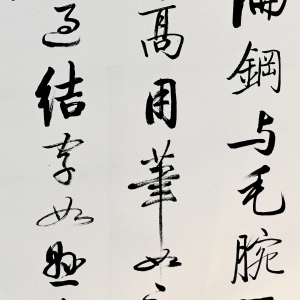 鋼与毛腕
高用筆如
過結字如